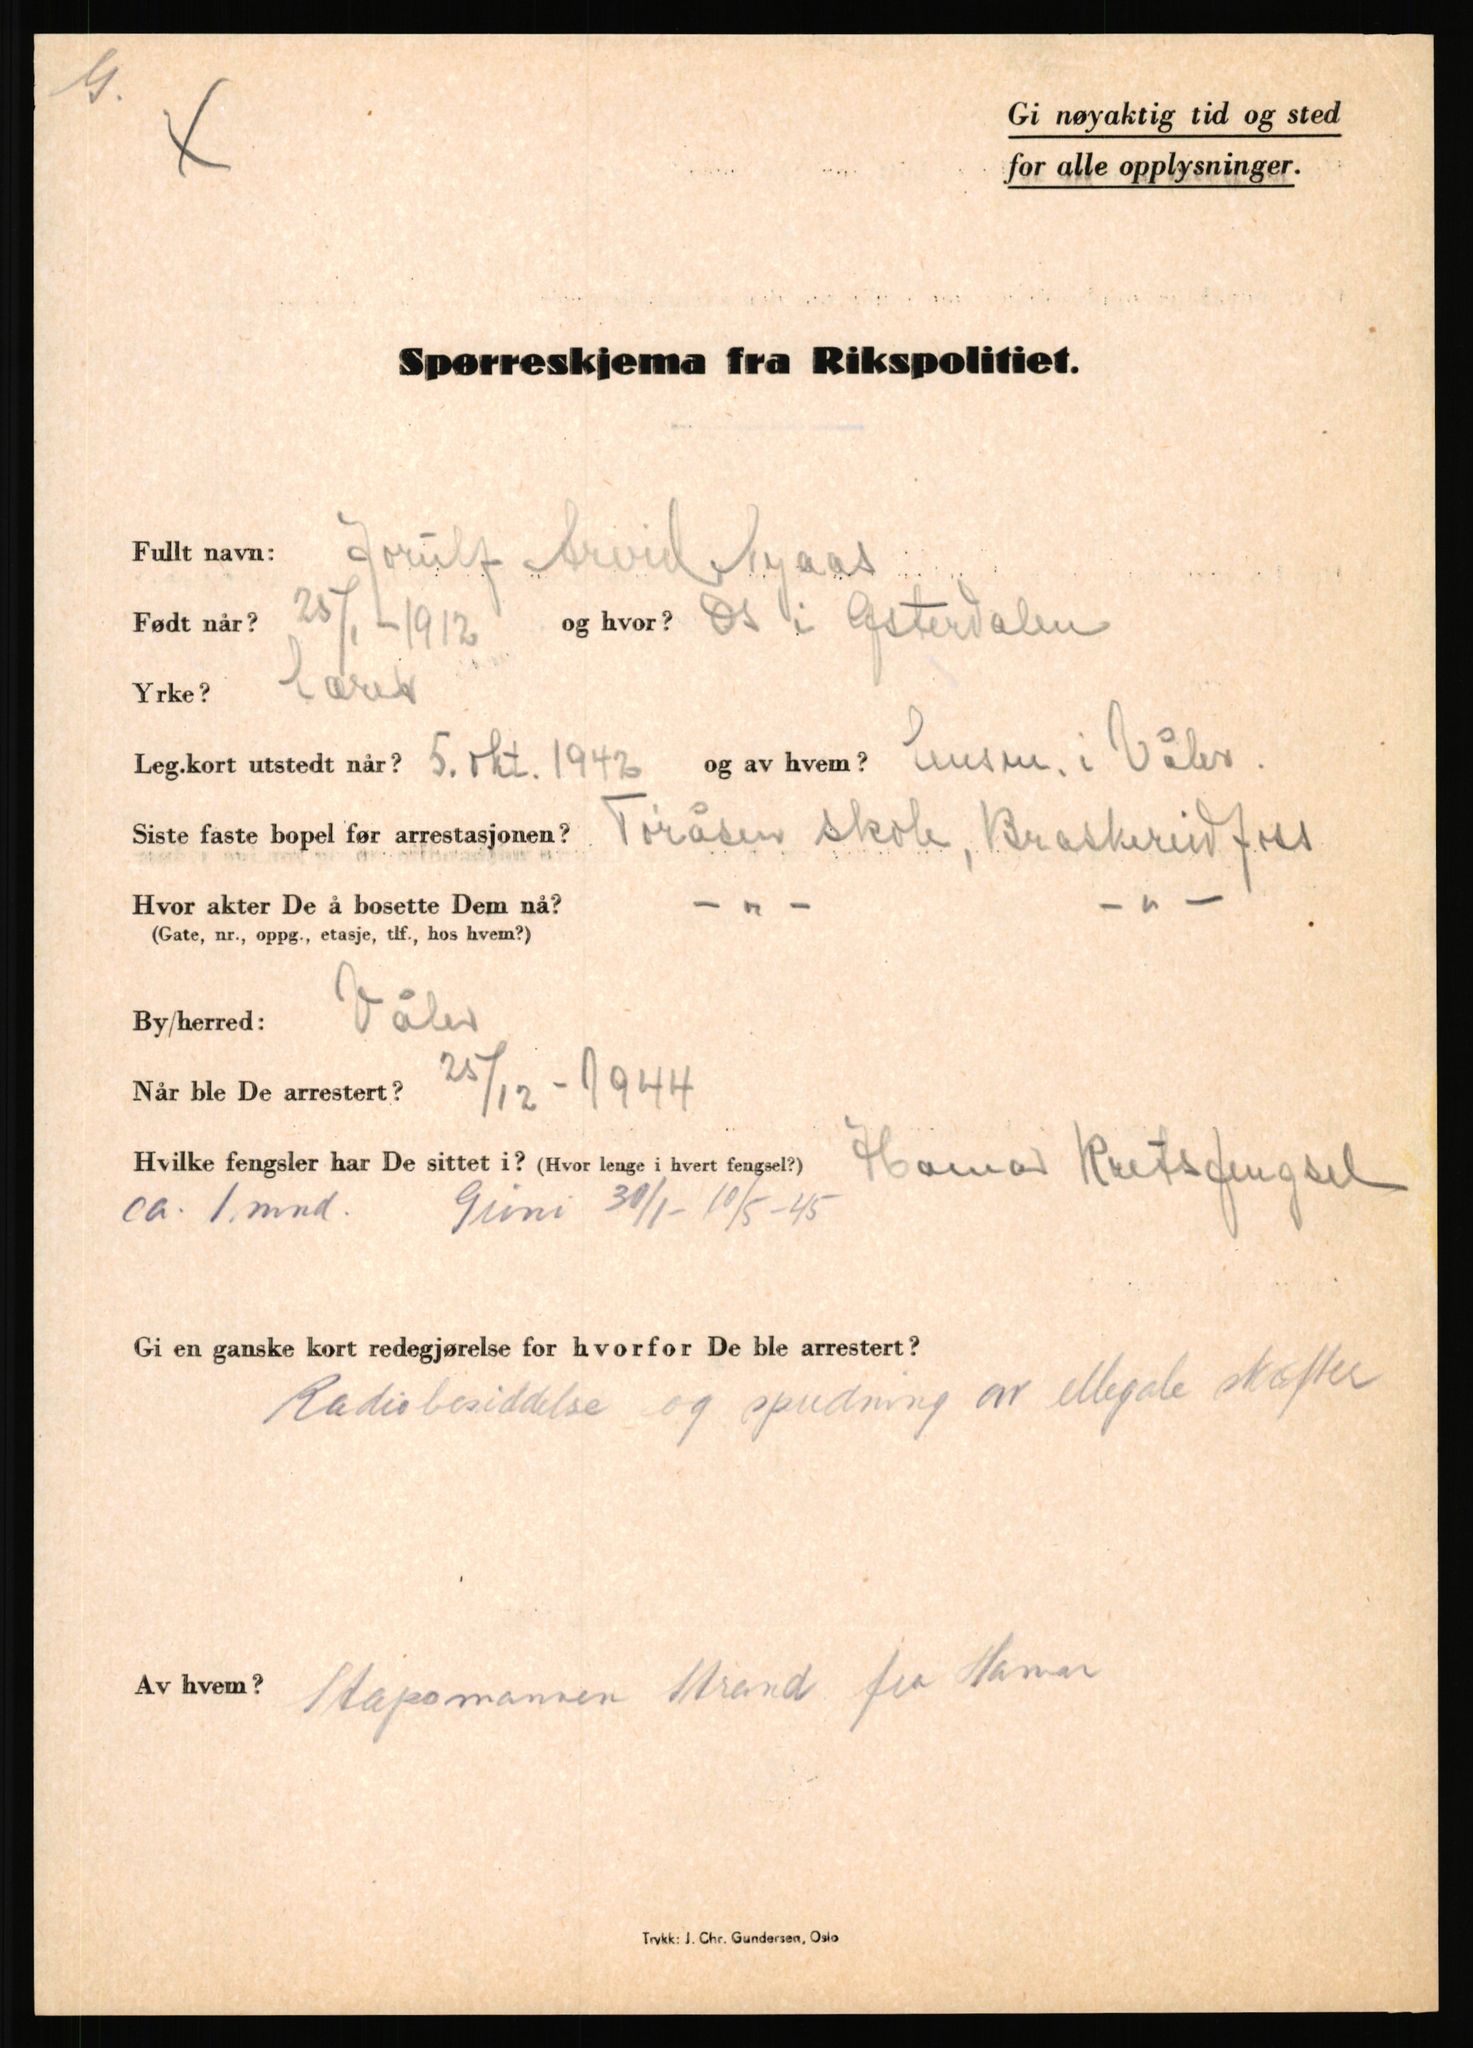 G.
Gi nøyaktig tid og sted
for alle opplysninger.
Spørreskjema fra Rikspolitiet.
Fullt navn: Jorulf Arvid Nyaas
Født når? 25/1-1912 og hvor? Os i Østerdalen
Yrke? Lærer
Leg.kort utstedt når? 5. okt. 1942 og av hvem? Lensm. i Våler.
Siste faste bopel før arrestasjonen? Toråsen skole, Braskereidfoss
Hvor akter De å bosette Dem nå? - " - - " -
(Gate, nr., oppg., etasje, tlf., hos hvem?)
By/herred: Våler
Når ble De arrestert? 25/12-1944
Hvilke fengsler har De sittet i? (Hvor lenge i hvert fengsel?) Hamar Kretsfengsel
ca. 1. mnd. Grini 30/1- 10/5-45
Gi en ganske kort redegjørelse for hvorfor De ble arrestert?
Radiobesiddelse og spredning av illegale skrifter
Av hvem? Stapomannen Strand fra Hamar
Trykk: J. Chr. Gundersen, Oslo